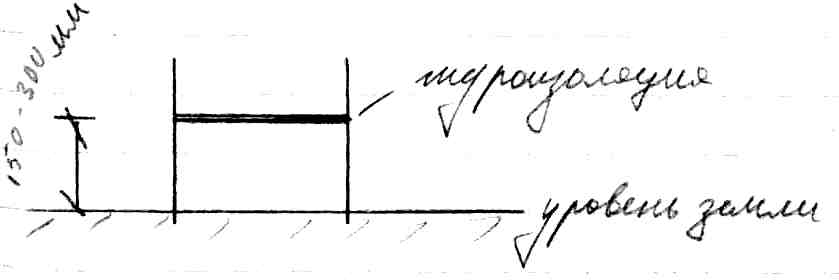 150-300 мм
гидроизоляция
уровень земли